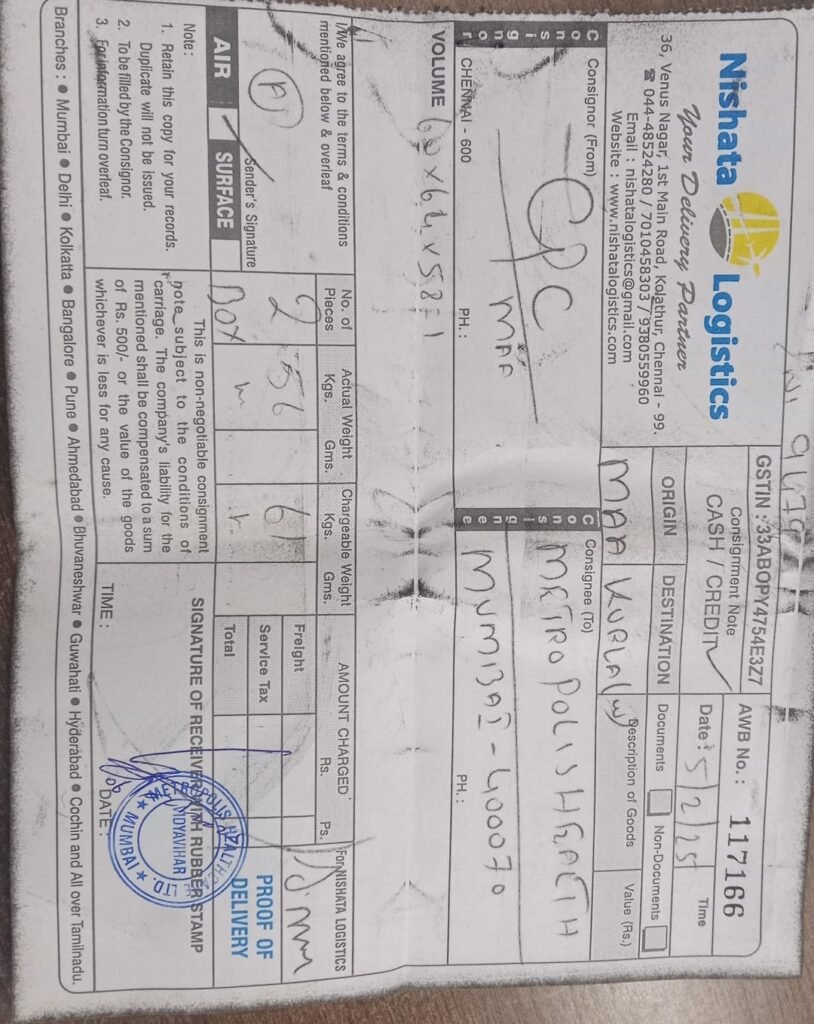 Nishata Logistics
Your Delivery Partner
36, Venus Nagar, 1st Main Road, Kolathur, Chennai - 99.
☎ 044-48524280 / 7010458303 / 9380559960
Email : nishatalogistics@gmail.com
Website : www.nishatalogistics.com
9479
GSTIN : 33ABOPY4754E3Z7
Consignment Note
CASH / CREDIT
AWB No.: 117166
Date : 5/2/25 Time
ORIGIN DESTINATION
MAA KURLA (W)
Documents Non-Documents
Description of Goods Value (Rs.)
Consignor
Consignor (From)
CPC
MAA
CHENNAI - 600 PH. :
Consignee
Consignee (To)
METROPOLIS HEALTH
MUMBAI - 400070
PH. :
VOLUME 60 x 64 x 58 = 1
I/We agree to the terms & conditions
mentioned below & overleaf
Sender's Signature
AIR SURFACE
No. of Pieces Actual Weight Kgs. Gms. Chargeable Weight Kgs. Gms.
2 56 61
BOX
AMOUNT CHARGED Rs. Ps.
Freight
Service Tax
Total
For NISHATA LOGISTICS
PROOF OF
DELIVERY
Note :
1. Retain this copy for your records.
Duplicate will not be issued.
2. To be filled by the Consignor.
3. For information turn overleaf.
This is non-negotiable consignment
note subject to the conditions of
carriage. The company's liability for the
mentioned shall be compensated to a sum
of Rs. 500/- or the value of the goods
whichever is less for any cause.
SIGNATURE OF RECEIVER WITH RUBBER STAMP
TIME : DATE :
METROPOLIS HEALTHCARE LTD.
VIDYAVIHAR
★ MUMBAI ★
Branches : ● Mumbai ● Delhi ● Kolkatta ● Bangalore ● Pune ● Ahmedabad ● Bhuvaneshwar ● Guwahati ● Hyderabad ● Cochin and All over Tamilnadu.